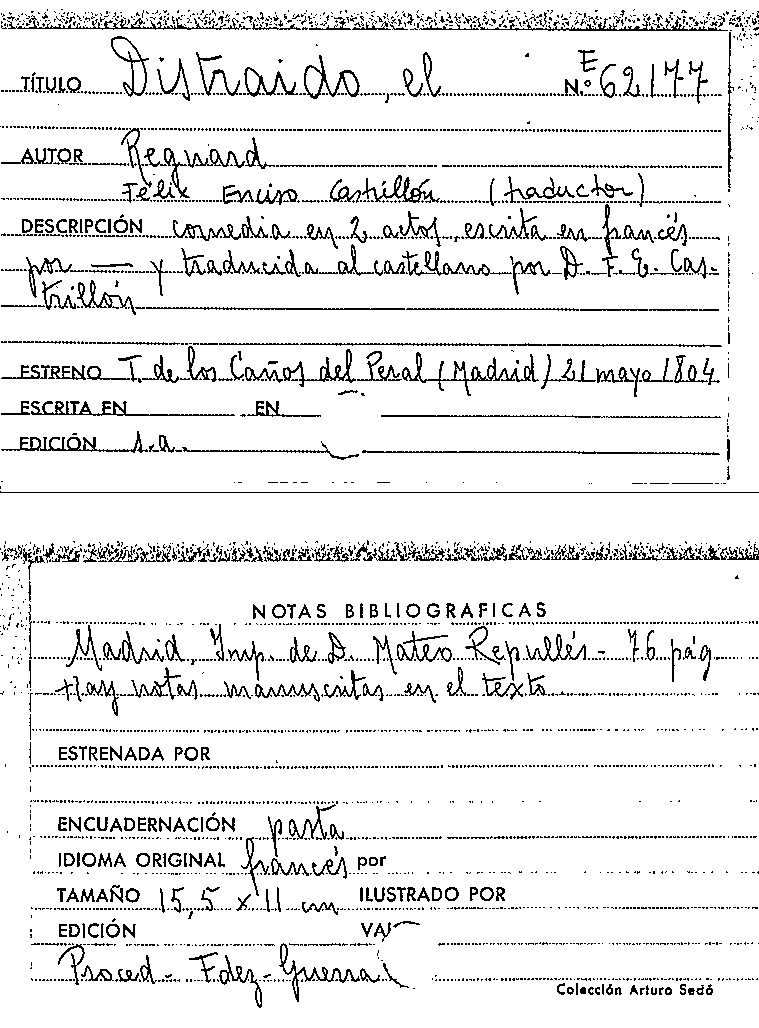 TÍTULO Distraido, el E N.º 62177
AUTOR Regnard
Félix Enciso Castrillón (traductor)
DESCRIPCIÓN comedia en 2 actos, escrita en francés
por — y traducida al castellano por D. F. E. Cas-
trillón
ESTRENO T. de los Caños del Peral (Madrid) 21 mayo 1804
ESCRITA EN EN
EDICIÓN s.a.
NOTAS BIBLIOGRAFICAS
Madrid, Imp. de D. Mateo Repullés - 76 pág
Hay notas manuscritas en el texto
ESTRENADA POR
ENCUADERNACIÓN pasta
IDIOMA ORIGINAL francés por
TAMAÑO 15,5 x 11 cm ILUSTRADO POR
EDICIÓN
Proced - Fdez-Guerra
Colección Arturo Sedó